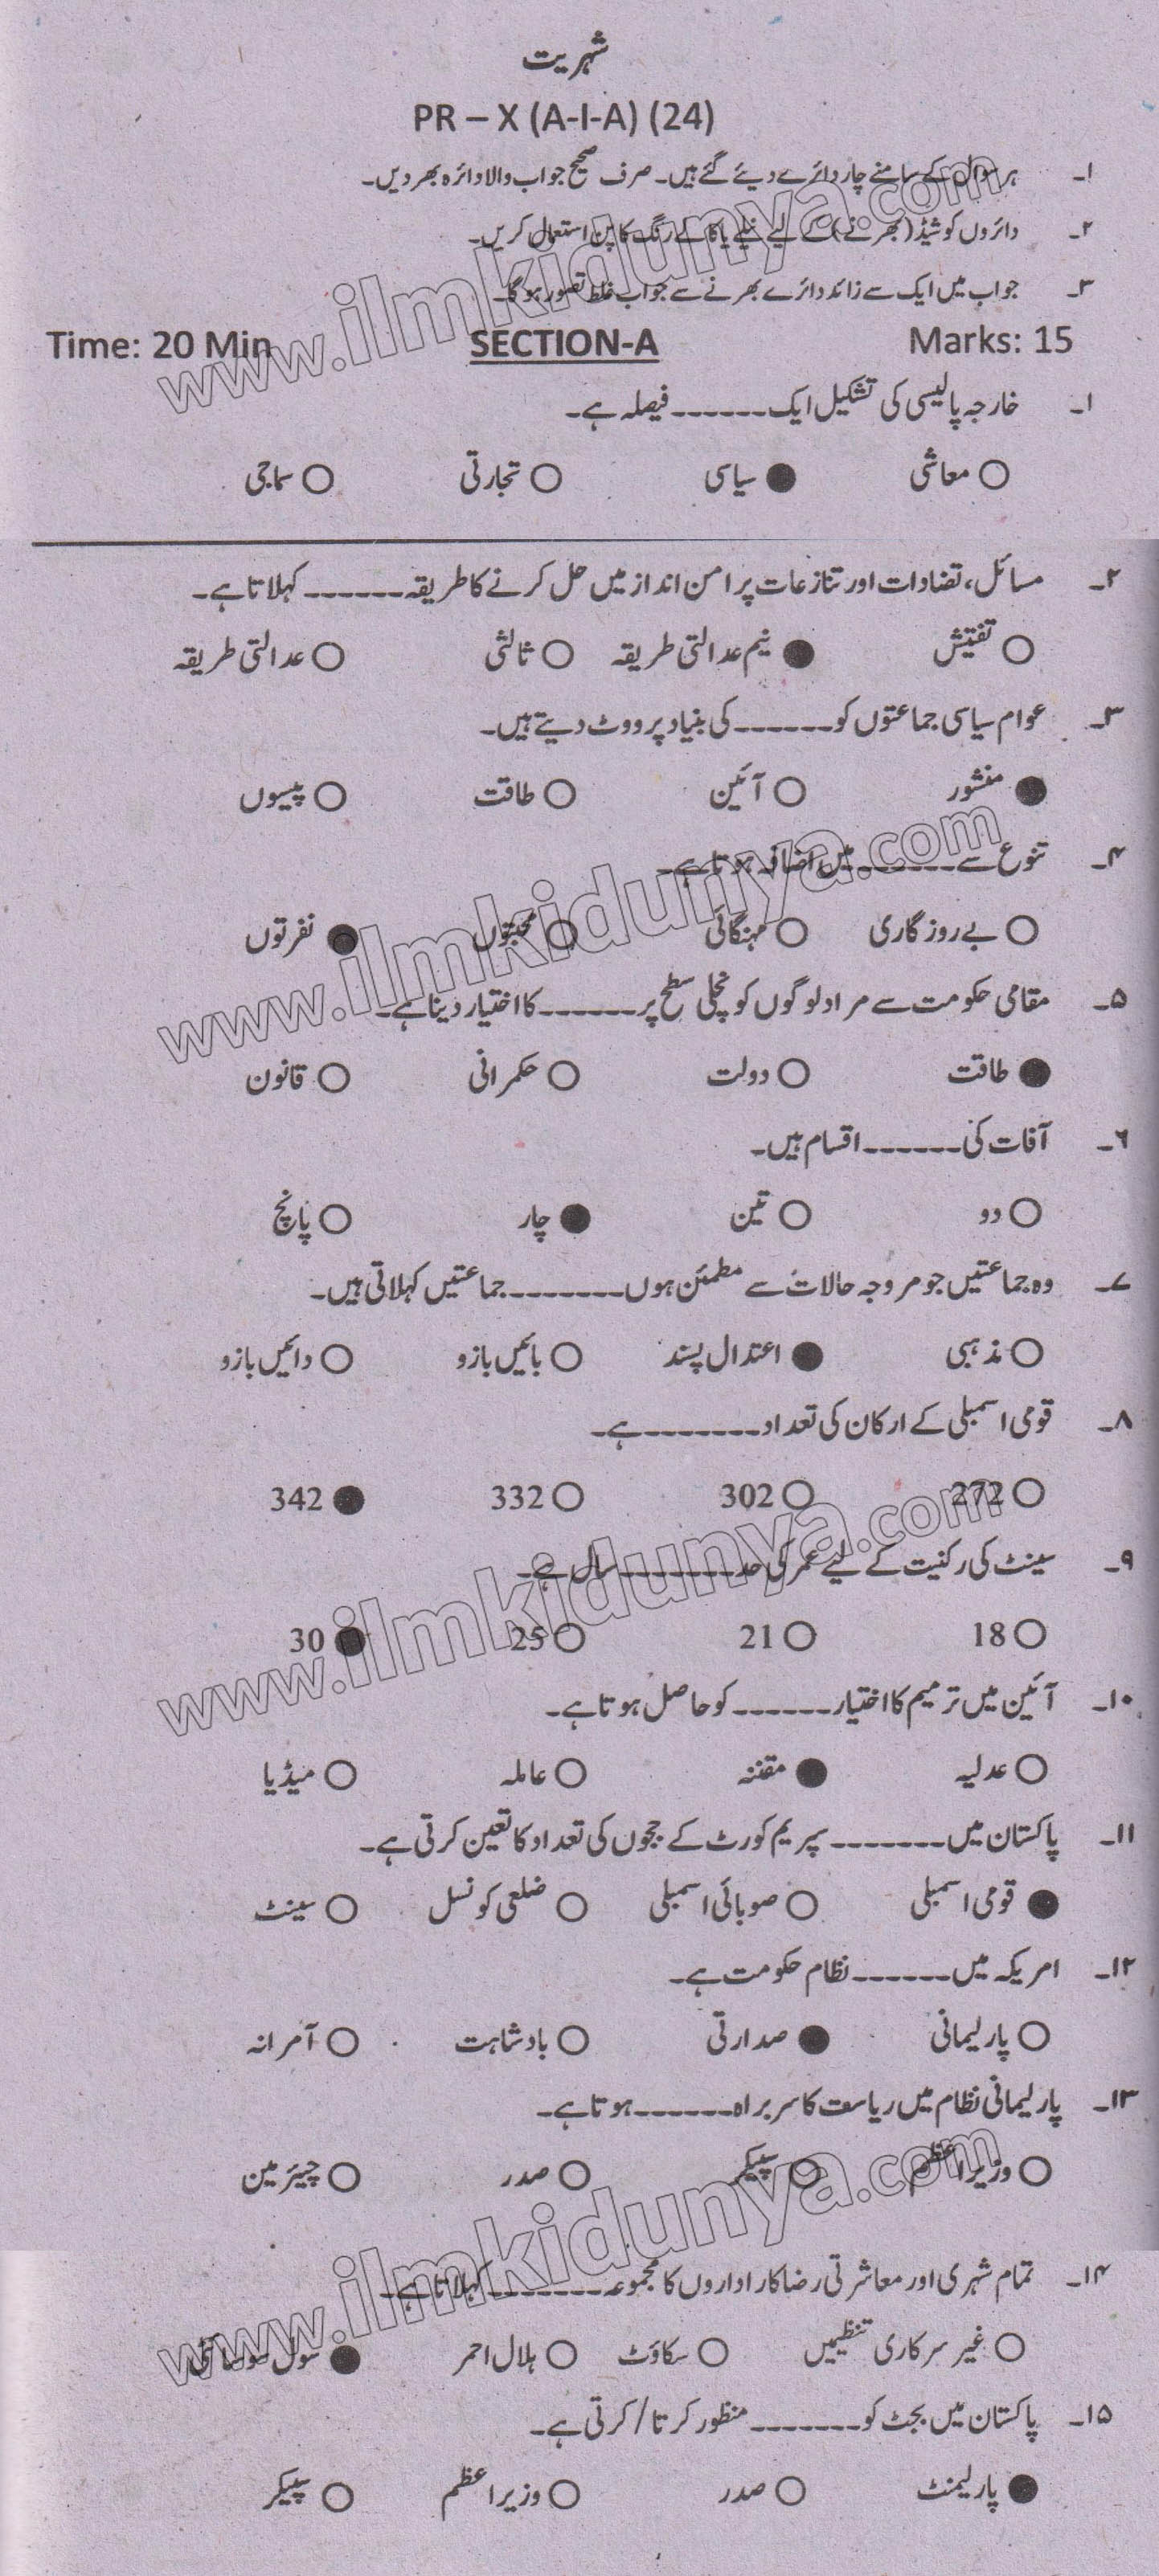 شہریت
PR – X (A-I-A) (24)
۱۔ ہر سوال کے سامنے چار دائرے دیئے گئے ہیں۔ صرف صحیح جواب والا دائرہ بھر دیں۔
۲۔ دائروں کو شیڈ (بھرنے) کے لیے نیلے یا کالے رنگ کا پن استعمال کریں۔
۳۔ جواب میں ایک سے زائد دائرے بھرنے سے جواب غلط تصور ہو گا۔
Time: 20 Min SECTION-A Marks: 15
۱۔ خارجہ پالیسی کی تشکیل ایک ------ فیصلہ ہے۔
○ معاشی ● سیاسی ○ تجارتی ○ سماجی
۲۔ مسائل، تضادات اور تنازعات پر امن انداز میں حل کرنے کا طریقہ ------ کہلاتا ہے۔
○ تفتیش ● نیم عدالتی طریقہ ○ ثالثی ○ عدالتی طریقہ
۳۔ عوام سیاسی جماعتوں کو ------ کی بنیاد پر ووٹ دیتے ہیں۔
● منشور ○ آئین ○ طاقت ○ پیسوں
۴۔ تنوع سے ------ میں اضافہ ہوتا ہے۔
○ بے روزگاری ○ مہنگائی ○ محبتوں ● نفرتوں
۵۔ مقامی حکومت سے مراد لوگوں کو نچلی سطح پر ------ کا اختیار دینا ہے۔
● طاقت ○ دولت ○ حکمرانی ○ قانون
۶۔ آفات کی ------ اقسام ہیں۔
○ دو ○ تین ● چار ○ پانچ
۷۔ وہ جماعتیں جو مروجہ حالات سے مطمئن ہوں ------- جماعتیں کہلاتی ہیں۔
○ مذہبی ● اعتدال پسند ○ بائیں بازو ○ دائیں بازو
۸۔ قومی اسمبلی کے ارکان کی تعداد ------- ہے۔
○ 272 ○ 302 ○ 332 ● 342
۹۔ سینٹ کی رکنیت کے لیے عمر کی حد ------- سال ہے۔
○ 18 ○ 21 ○ 25 ● 30
۱۰۔ آئین میں ترمیم کا اختیار ------ کو حاصل ہوتا ہے۔
○ عدلیہ ● مقننہ ○ عاملہ ○ میڈیا
۱۱۔ پاکستان میں ------- سپریم کورٹ کے ججوں کی تعداد کا تعین کرتی ہے۔
● قومی اسمبلی ○ صوبائی اسمبلی ○ ضلعی کونسل ○ سینٹ
۱۲۔ امریکہ میں ------ نظام حکومت ہے۔
○ پارلیمانی ● صدارتی ○ بادشاہت ○ آمرانہ
۱۳۔ پارلیمانی نظام میں ریاست کا سربراہ ------ ہوتا ہے۔
○ وزیراعظم ○ سپیکر ○ صدر ○ چیئرمین
۱۴۔ تمام شہری اور معاشرتی رضاکار اداروں کا مجموعہ ------- کہلاتا ہے۔
○ غیر سرکاری تنظیمیں ○ سکاؤٹ ○ ہلال احمر ● سول سوسائٹی
۱۵۔ پاکستان میں بجٹ کو ------- منظور کرتا/کرتی ہے۔
● پارلیمنٹ ○ صدر ○ وزیراعظم ○ سپیکر
www.ilmkidunya.com
www.ilmkidunya.com
www.ilmkidunya.com
www.ilmkidunya.com